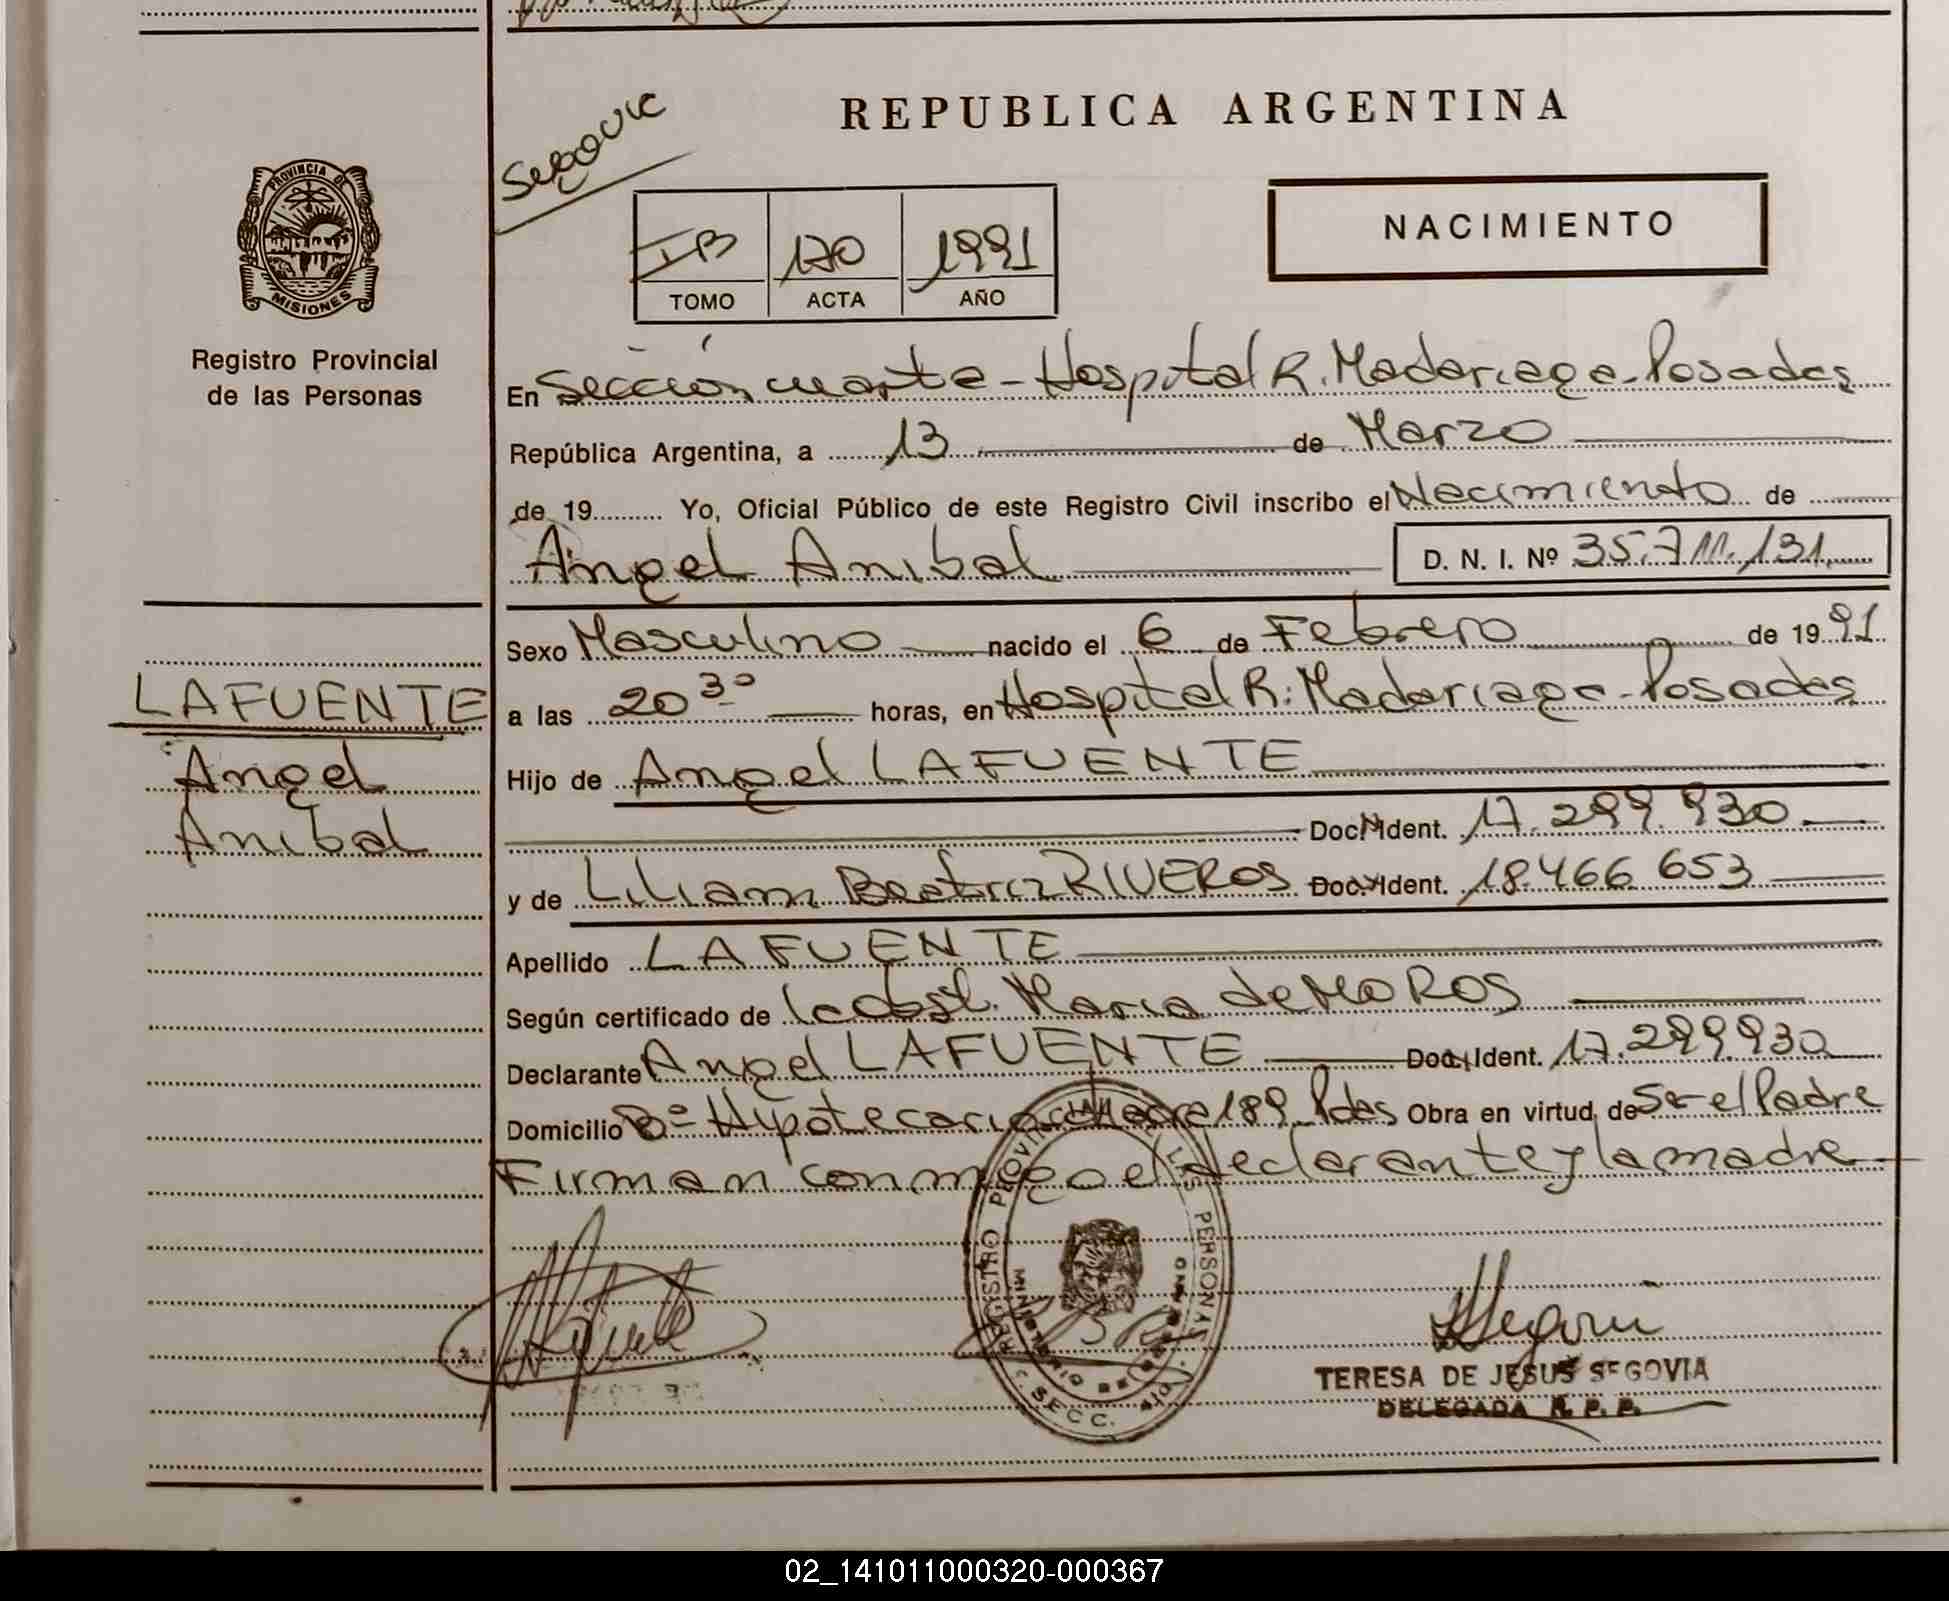 REPUBLICA ARGENTINA
Segovia
NACIMIENTO
PROVINCIA DE
MISIONES
Registro Provincial
de las Personas
IB 170 1991
TOMO ACTA AÑO
En Sección cuarta - Hospital R. Madariaga - Posadas
República Argentina, a 13 de Marzo
de 19 Yo, Oficial Público de este Registro Civil inscribo el Nacimiento de
Angel Anibal D. N. I. Nº 35.711.131
Sexo Masculino nacido el 6 de Febrero de 1991
LAFUENTE
Angel
Anibal
a las 20 30 horas, en Hospital R. Madariaga - Posadas
Hijo de Angel LAFUENTE
Doc. Ident. 17.299.930
y de Liliam Beatriz RIVEROS Doc. Ident. 18.466 653
Apellido LAFUENTE
Según certificado de la Obst. Maria de MOROS
Declarante Angel LAFUENTE Doc. Ident. 17.299.930
Domicilio Bº Hipotecario 189 Pdas Obra en virtud de Ser el Padre
Firman conmigo el declarante y la madre
REGISTRO PROVINCIAL DE LAS PERSONAS
SECC.
TERESA DE JESUS SEGOVIA
DELEGADA R. P. P.
02_141011000320-000367